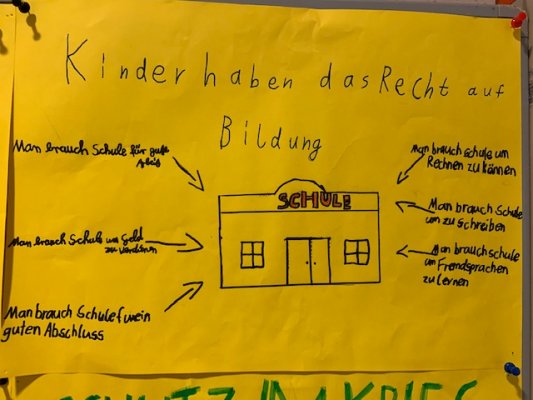 Kinder haben das Recht auf
Bildung
Man brauch Schule für gute
Man brauch Schule um Geld
zu verdinen
Man brauch Schule f wein
guten Abschluss
SCHULE
Man brauch schule um
Rechnen zu kännen
Man brauch Schule
um zu schreiben
Man brauch schule
um Fremdsprachen
zu lernen